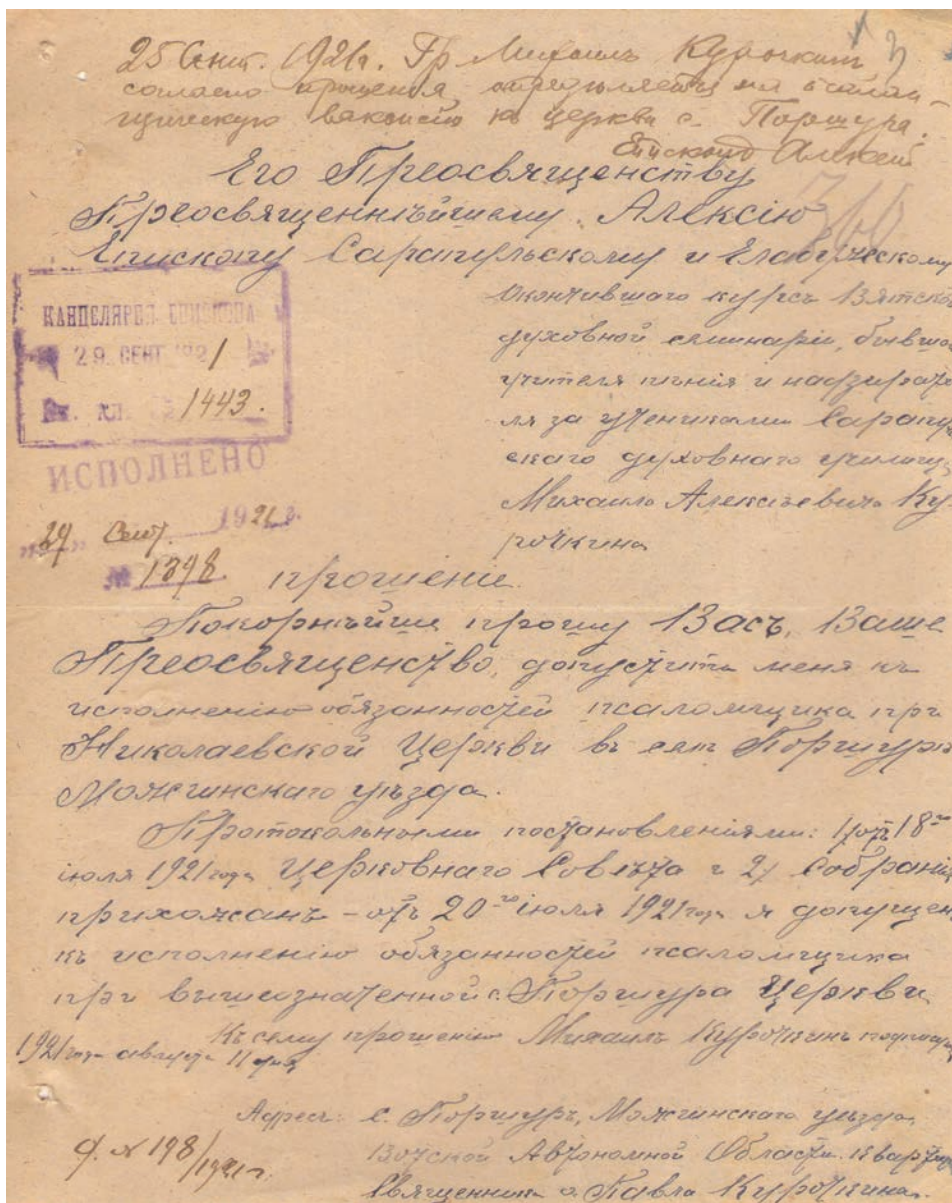 25 Сент. 1921 г. Гр. Михаилъ Курочкинъ
согласно прошения определяется на псалом-
щическую вакансию къ церкви с. Поршура.
Епископъ Алексий
Его Преосвященству
Преосвященнѣйшему Алексію
Епископу Сарапульскому и Елабужскому
КАНЦЕЛЯРІЯ ЕПИСКОПА
29 СЕНТ 1921
1443.
ИСПОЛНЕНО
29 Сент. 1921 г.
№ 1398
Окончившаго курсъ Вятской
духовной семинаріи, бывша
учителя пѣнія и надзирате
ля за учениками Сарапул
скаго духовнаго училища
Михаила Алексѣевича Ку
рочкина
прошеніе.
Покорнѣйше прошу Васъ, Ваше
Преосвященство, допустить меня къ
исполненію обязанностей псаломщика при
Николаевской Церкви въ селѣ Поршурѣ
Можгинскаго уѣзда.
Протокольными постановленіями: 1/ отъ 18го
іюля 1921 года Церковнаго Совѣта и 2/ Собранія
прихожанъ – отъ 20го іюля 1921 года я допущен
къ исполненію обязанностей псаломщика
при вышеозначенной с. Поршура Церкви
Къ сему прошенію Михаилъ Курочкинъ
1921 года августа 11 дня
Адресъ: с. Поршуръ, Можгинскаго уѣзда,
Вотской Автономной Области. Квартира
Священника о. Павла Курочкина.
№ 198/1921 г.